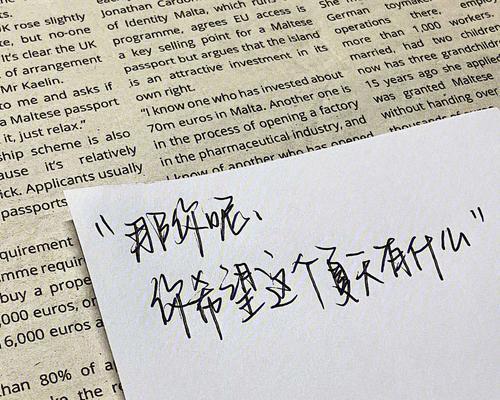 K rose slightly
ke, but no-one
It's clear the UK
of arrangement
Mr Kaelin.
to me and asks if
a Maltese passport
it, just relax."
ship scheme is also
ause it's relatively
ick. Applicants usually
passports
quirement
mme requir
buy a prope
,000 euros, or
16,000 euros a
han 80% of a
Jonathan Cardon
of Identity Malta, which runs
programme, agrees EU access is
a key selling point for a Maltese
passport but argues that the island
is an attractive investment in its
own right.
"I know one who has invested about
70m euros in Malta. Another one is
in the process of opening a factory
in the pharmaceutical industry, and
I know of another who has opened
She
German boymaker
operations there, emplo
more than 1,000 workers.
married, had two children
now has three grandchildre
15 years ago she applied
was granted Maltese
without handing over
thousands of
"那你呢、
你希望这个夏天有什么"